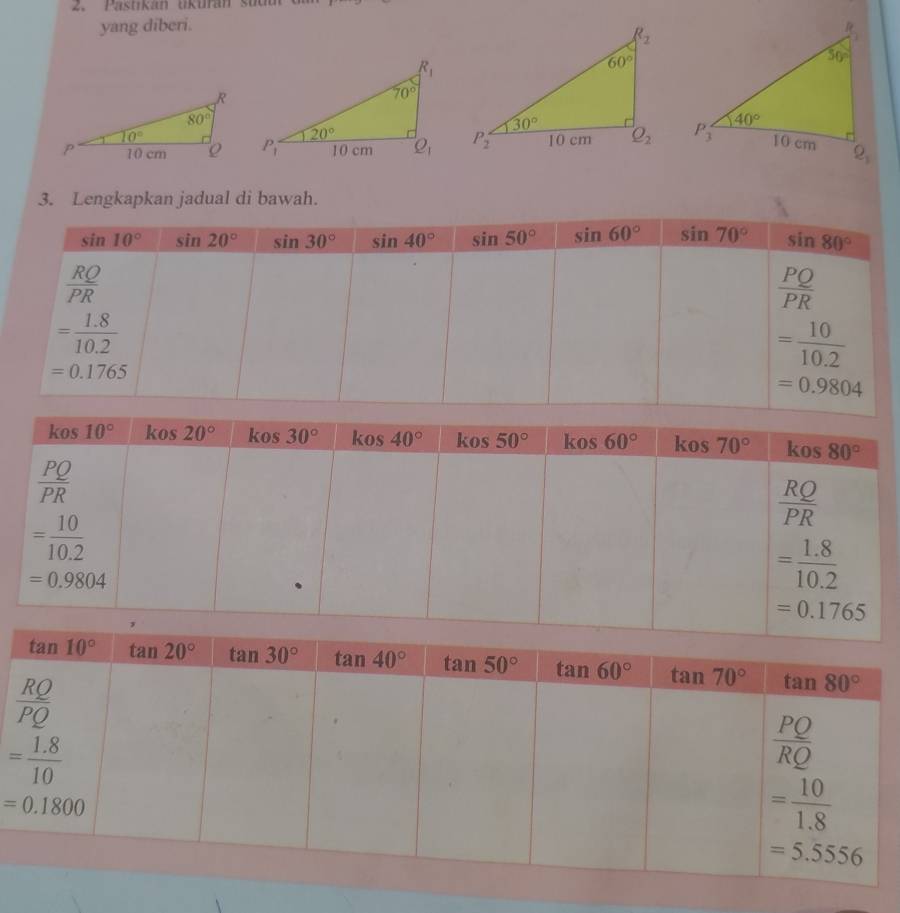 2. Pastikan ukuran sudut
yang diberi.
R 80° 10° P 10 cm Q
R₁ 70° 20° P₁ 10 cm Q₁
R₂ 60° 30° P₂ 10 cm Q₂
R₃ 50° 40° P₃ 10 cm Q₃
3. Lengkapkan jadual di bawah.
sin 10° sin 20° sin 30° sin 40° sin 50° sin 60° sin 70° sin 80°
RQ/PR PQ/PR
= 1.8/10.2 = 10/10.2
= 0.1765 = 0.9804
kos 10° kos 20° kos 30° kos 40° kos 50° kos 60° kos 70° kos 80°
PQ/PR RQ/PR
= 10/10.2 = 1.8/10.2
= 0.9804 = 0.1765
tan 10° tan 20° tan 30° tan 40° tan 50° tan 60° tan 70° tan 80°
RQ/PQ PQ/RQ
= 1.8/10 = 10/1.8
= 0.1800 = 5.5556